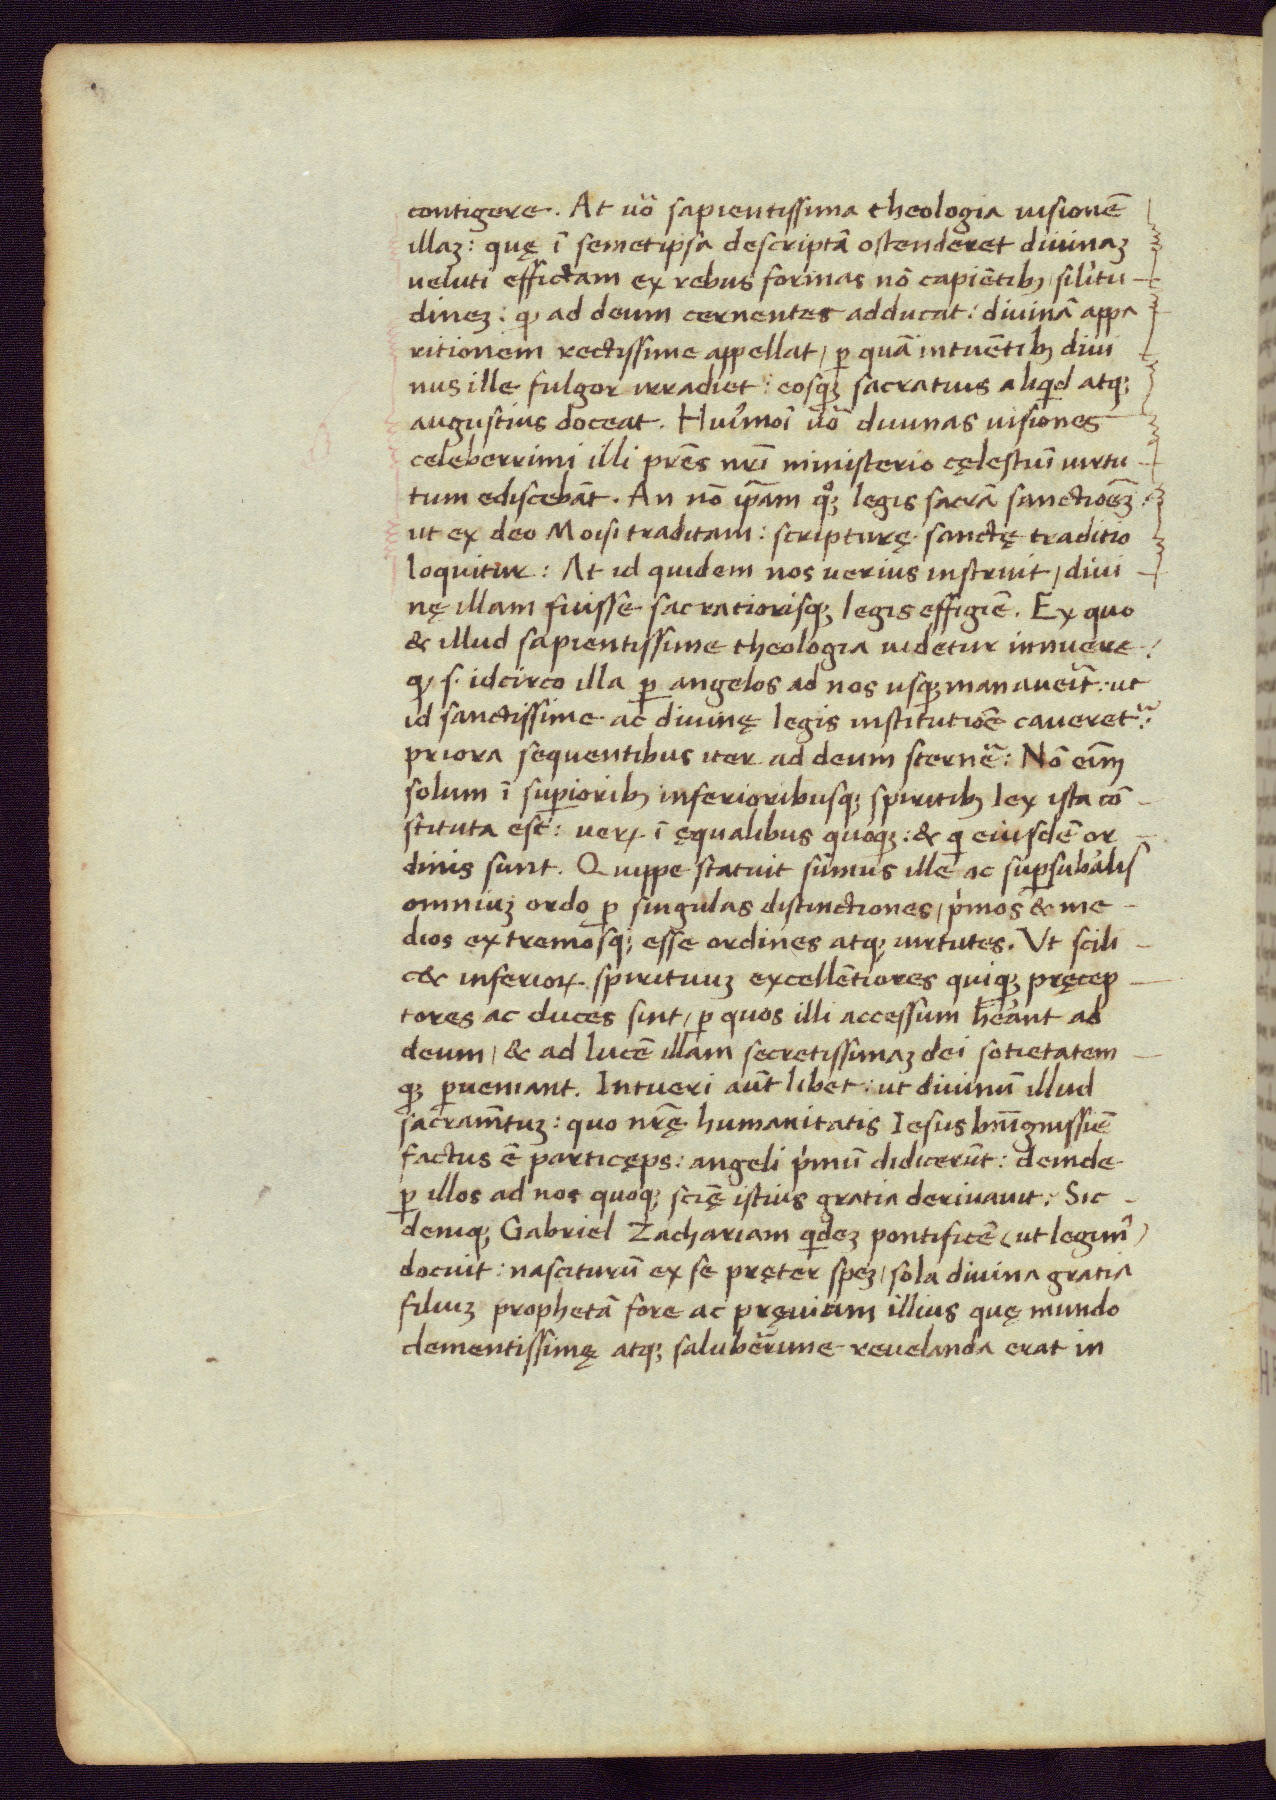 contigere. At uō sapientissima theologia uisionē
illaꝫ: quę ī semetipsa descriptā ostenderet diuinaꝫ
ueluti effictam ex rebus formas nō capiētibꝫ silitu-
dineꝫ: qꝫ ad deum cernentes adducat: diuinā appa
ritionem rectissime appellat, ꝑ quā intuētibꝫ diui
nus ille fulgor irradiet: eosqꝫ sacratius aliqd atqꝫ
augustius doceat. Huiꝰmōi uō diuinas uisiones
celeberrimi illi prēs nrī ministerio cęlestiuī uirtu-
tum ediscebāt. An nō ip̄am qͦꝫ legis sacrā sanctiōeꝫ:
ut ex deo Moisi traditam: scripturę sanctę traditio
loquitur: At id quidem nos uerius instruit, diui
nę illam fuisse sacratiorisqꝫ legis effigiē. Ex quo
& illud sapientissime theologia uidetur innuere:
qꝫ s. idcirco illa ꝑ angelos ad nos usqꝫ manauerīt: ut
id sanctissime ac diuinę legis institutiōe caueretᷣ:
priora sequentibus iter ad deum sternē: Nō eīm
solum ī supioribꝫ inferioribusqꝫ spiritibꝫ lex ista cō-
stituta est: ueꝝ ī ęqualibus quoqꝫ: & q eiusdē or-
dinis sunt. Quippe statuit sūmus ille ac suꝑsubālis
omniuꝫ ordo ꝑ singulas distinctiones, pͥmos & me-
dios extremosqꝫ esse ordines atqꝫ uirtutes. Vt scili-
c& inferioꝝ spirituuꝫ excellētiores quiqꝫ pręcep-
tores ac duces sint, ꝑ quos illi accessum hēant ad
deum, & ad lucē illam secretissimaꝫ dei sotietatem-
qꝫ ꝑueniant. Intueri aūt libet: ut diuinū illud
sacramētuꝫ: quo nrę̄ humanitatis Iesus bnīgnissīe
factus ē particęps: angeli pͥmū didicerūt: deinde
ꝑ illos ad nos quoqꝫ scię̄ istius gratia deriuauit: Sic-
deniqꝫ Gabriel Zachariam qdeꝫ pontificē (ut legimꝰ)
docuit: nasciturū ex se pręter speꝫ, sola diuina gratia
filiuꝫ prophetā fore ac pręuium illius quę mundo
clementissimę atqꝫ saluberīme reuelanda erat in